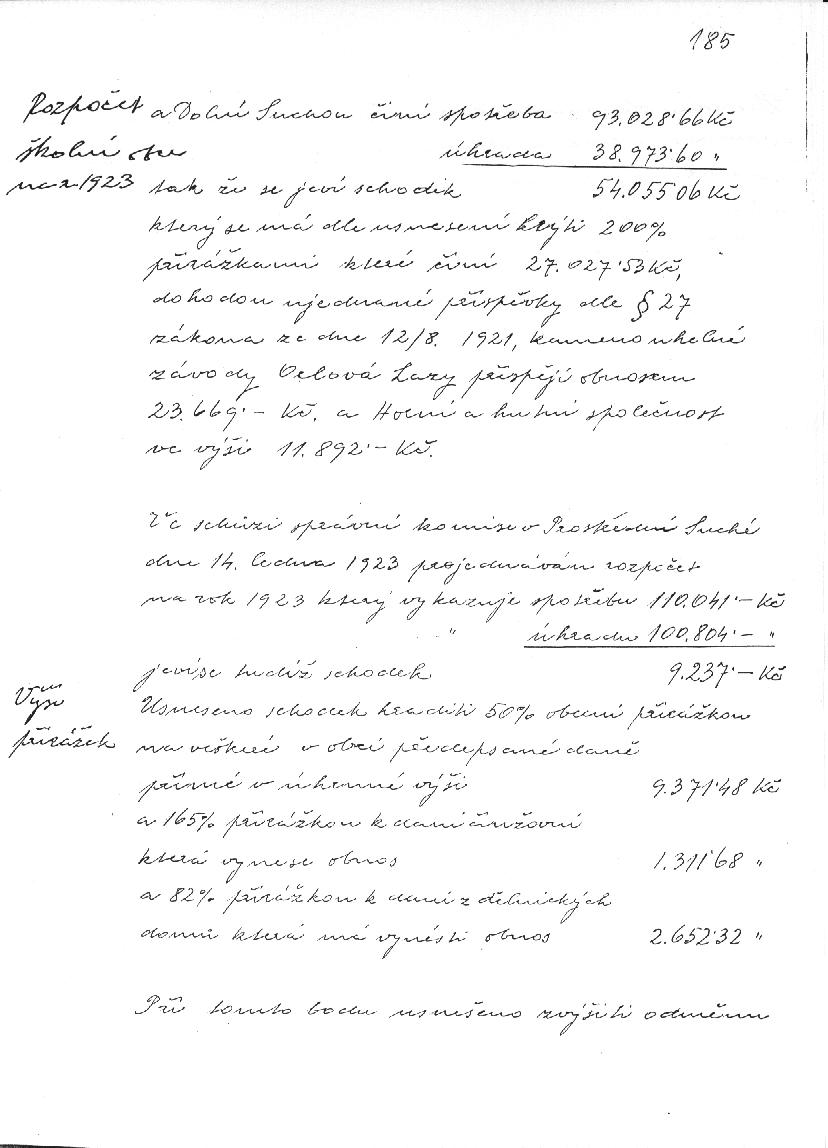 185
Rozpočet
školní obce
na r. 1923
a Dolní Suchou činí spotřeba 93.028·66 Kč
úhrada 38.973·60 "
tak že se jeví schodek 54.055 06 Kč
který se má dle usnesení krýti 200%
přirážkami které činí 27.027·53 Kč,
dohodou ujednané příspěvky dle § 27
zákona ze dne 12/8. 1921, kamenouhelné
závody Orlová Lazy přispějí obnosem
23.669·– Kč. a Horní a hutní společnost
ve výši 11.892·– Kč.
Ve schůzi správní komise v Prostřední Suché
dne 14. ledna 1923 projednáván rozpočet
na rok 1923 který vykazuje spotřebu 110.041·– Kč
" úhradu 100.804·– "
jeví se tudíž schodek 9.237·– Kč
Výše
přirážek
Usneseno schodek hraditi 50% obecní přirážkou
na veškeré v obci předepsané daně
přímé v úhrnné výši 9.371·48 Kč
a 165% přirážkou k dani činžovní
která vynese obnos 1.311·68 "
a 82% přirážkou k dani z dělnických
domů která má vynésti obnos 2.652·32 "
Při tomto bodu usnešeno zvýšiti odměnu